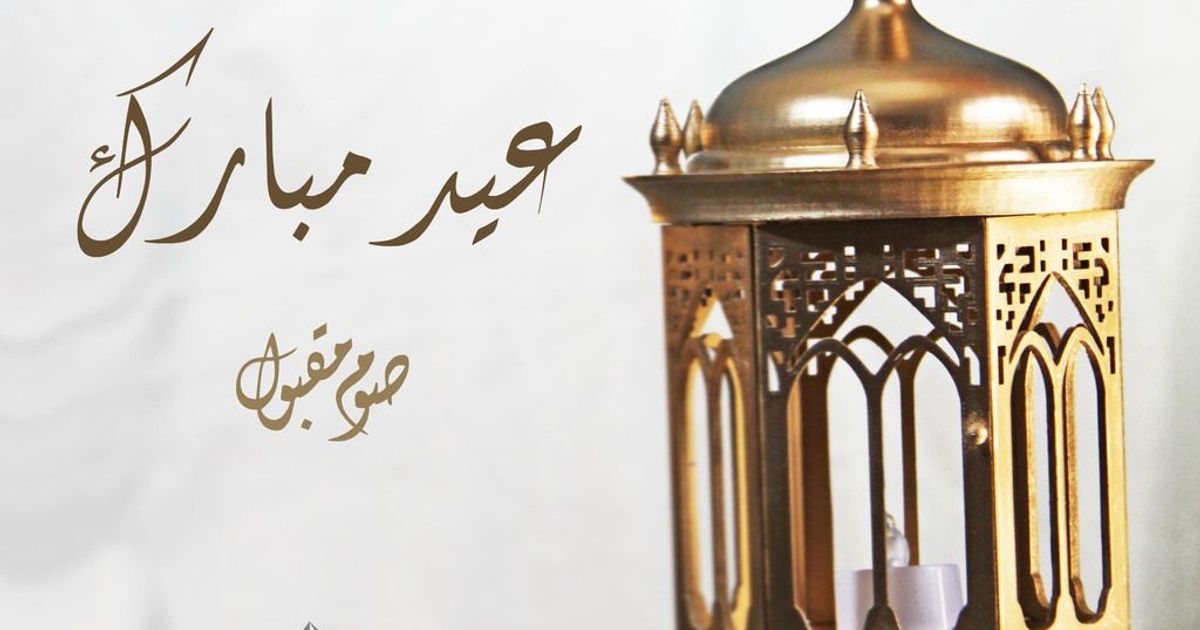 عيد مبارك
صوم مقبول